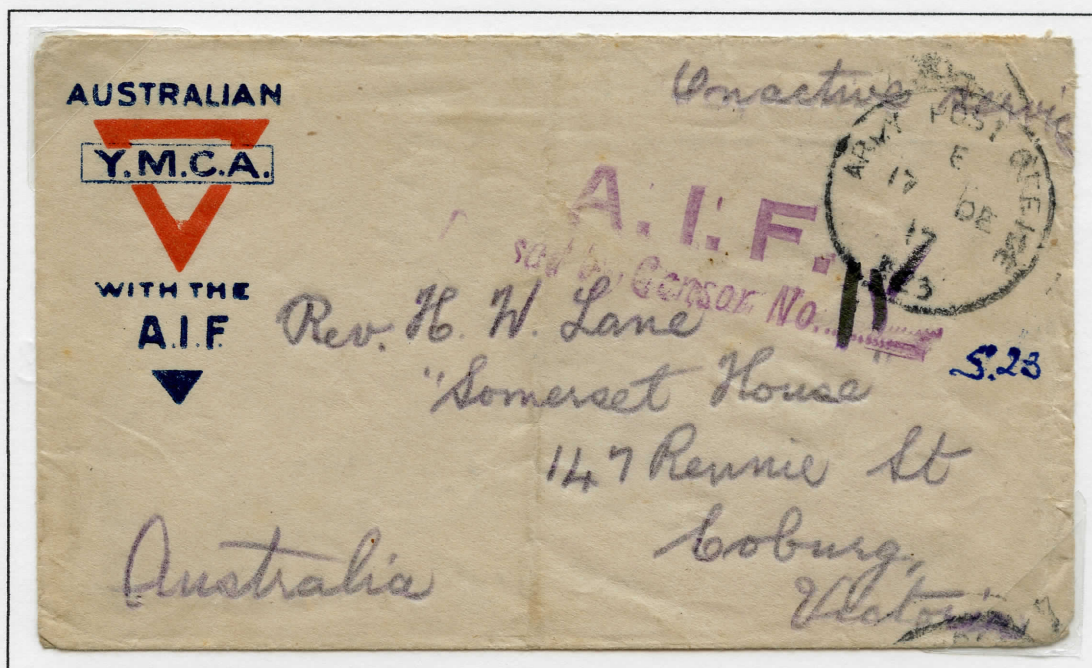 AUSTRALIAN
Y.M.C.A.
WITH THE
A.I.F.
On active Service
ARMY POST OFFICE
E
17 DE
17
A.I.F.
Censor No.
S.23
Rev. H. W. Lane
"Somerset House
147 Rennie St
Coburg,
Victoria
Australia